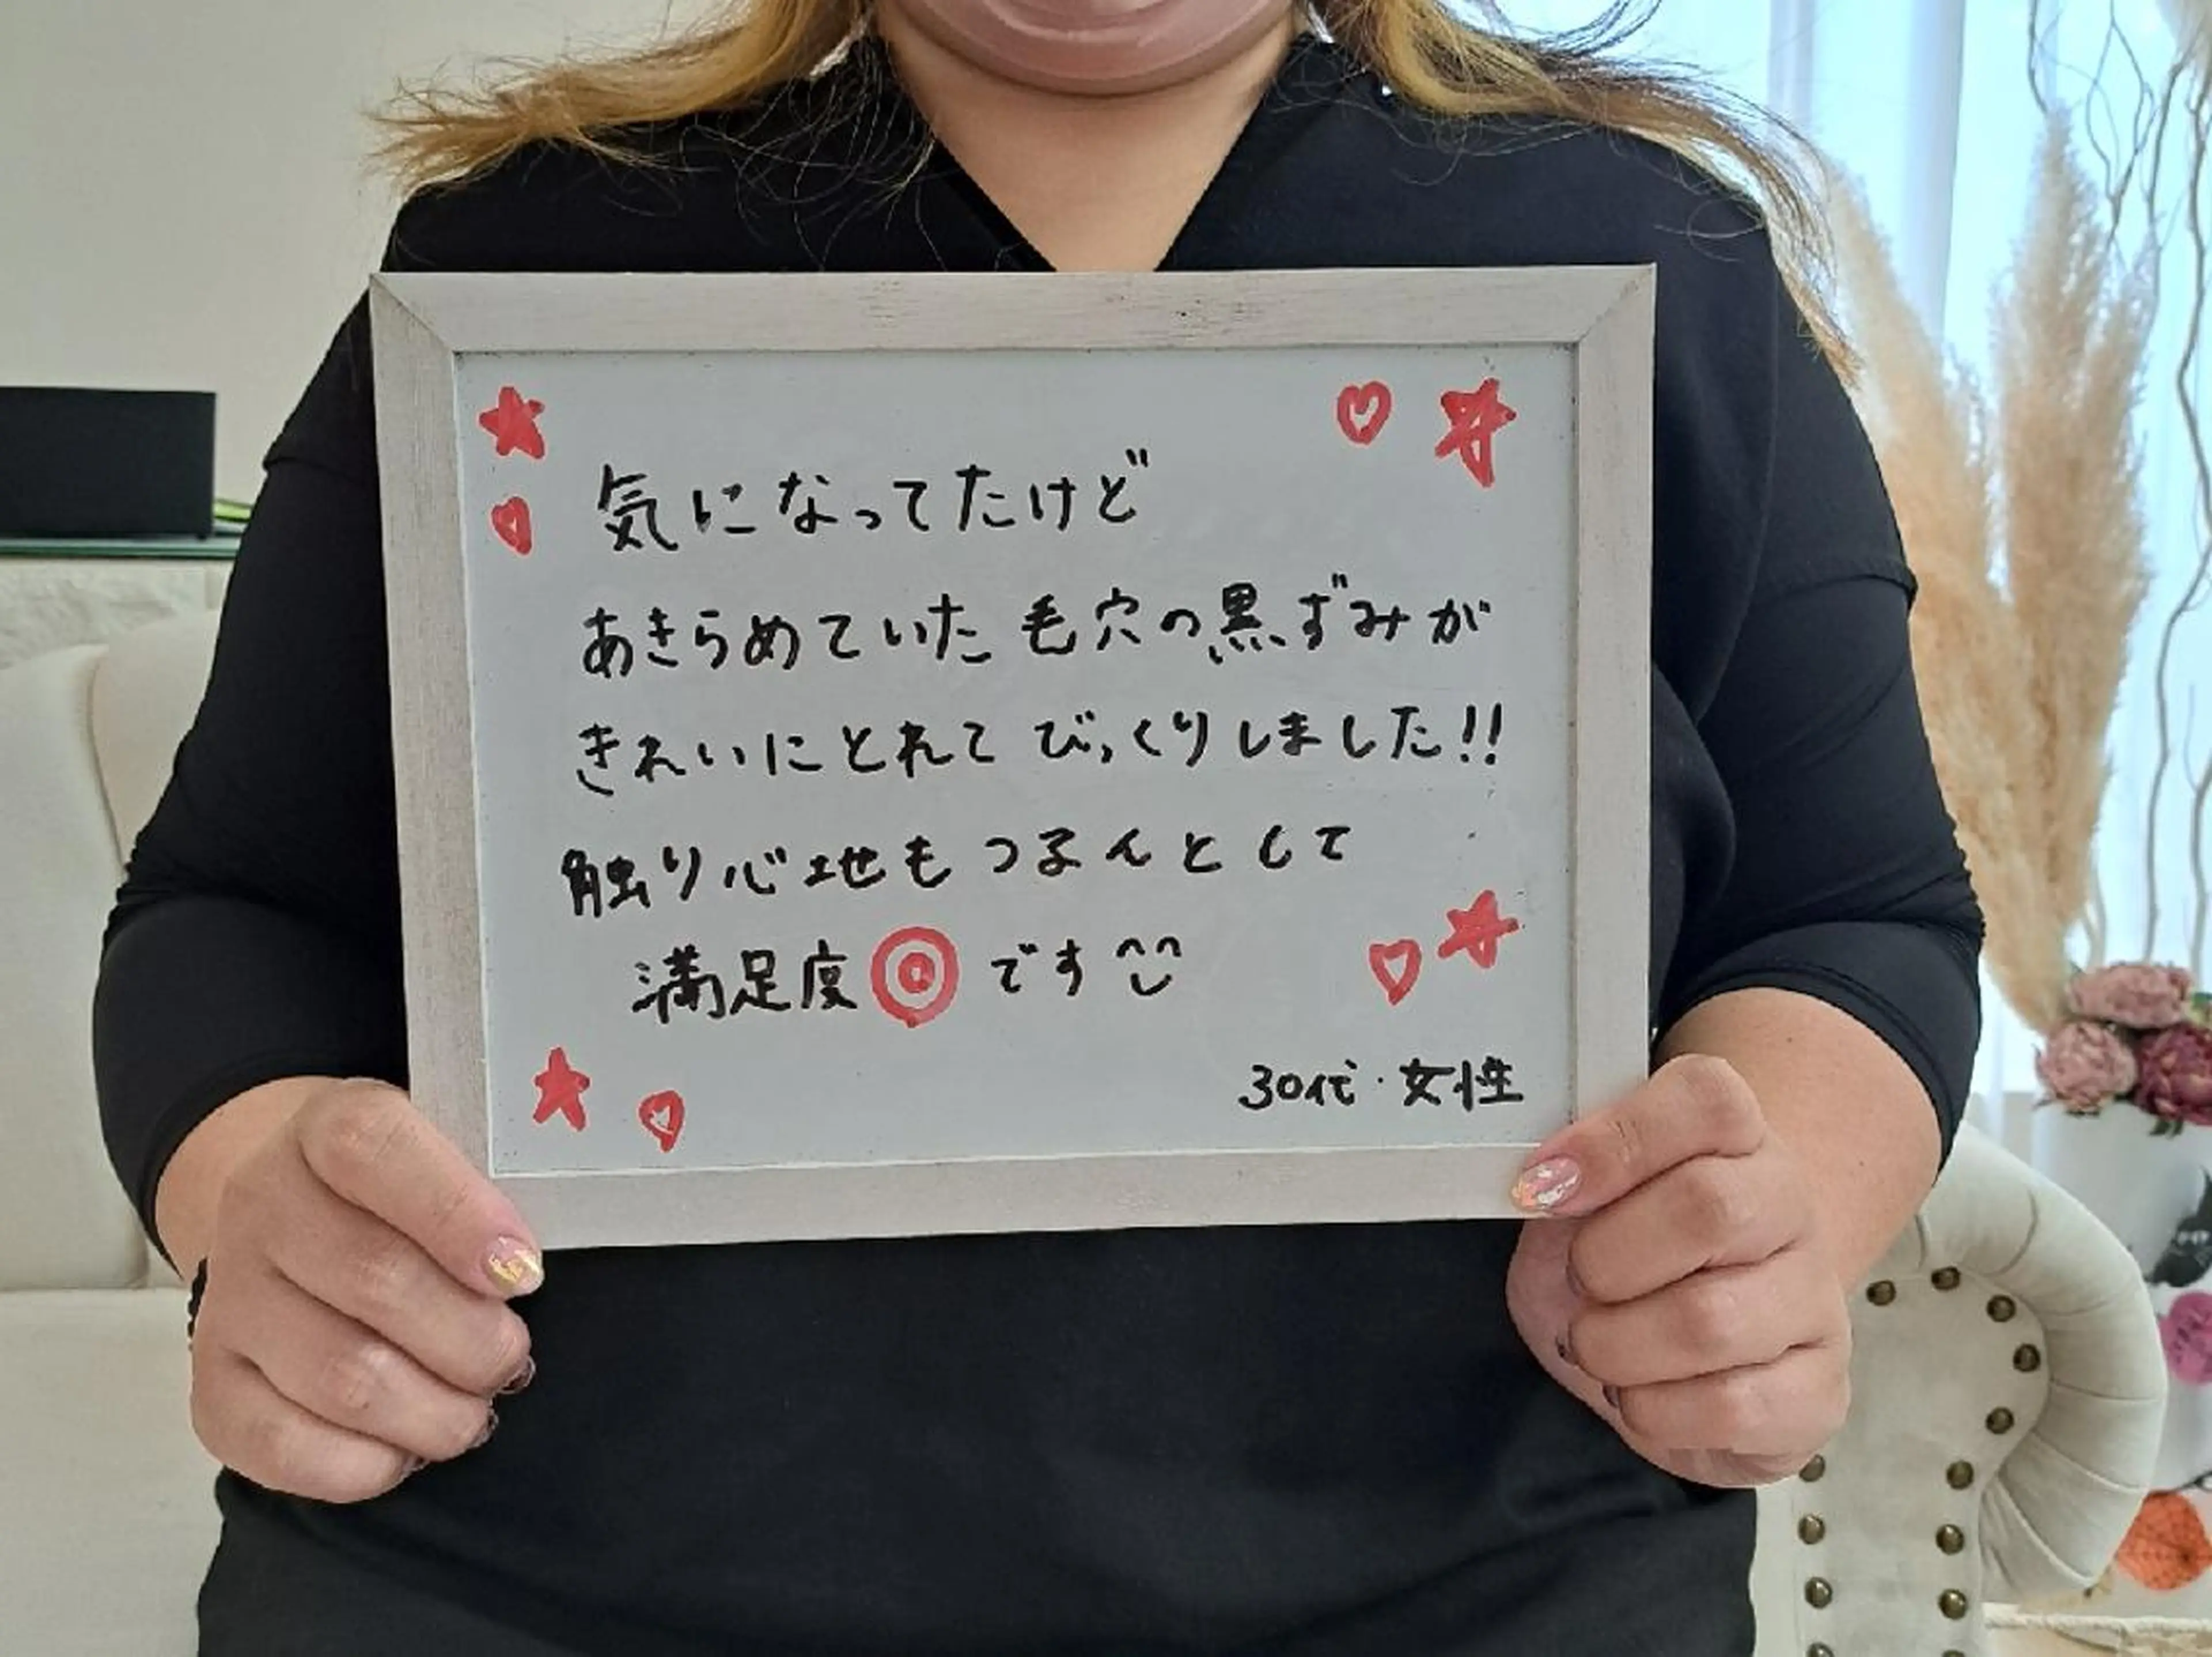 気になってたけど
あきらめていた毛穴の黒ずみが
きれいにとれてびっくりしました!!
触り心地もつるんとして
満足度◎です
30代・女性